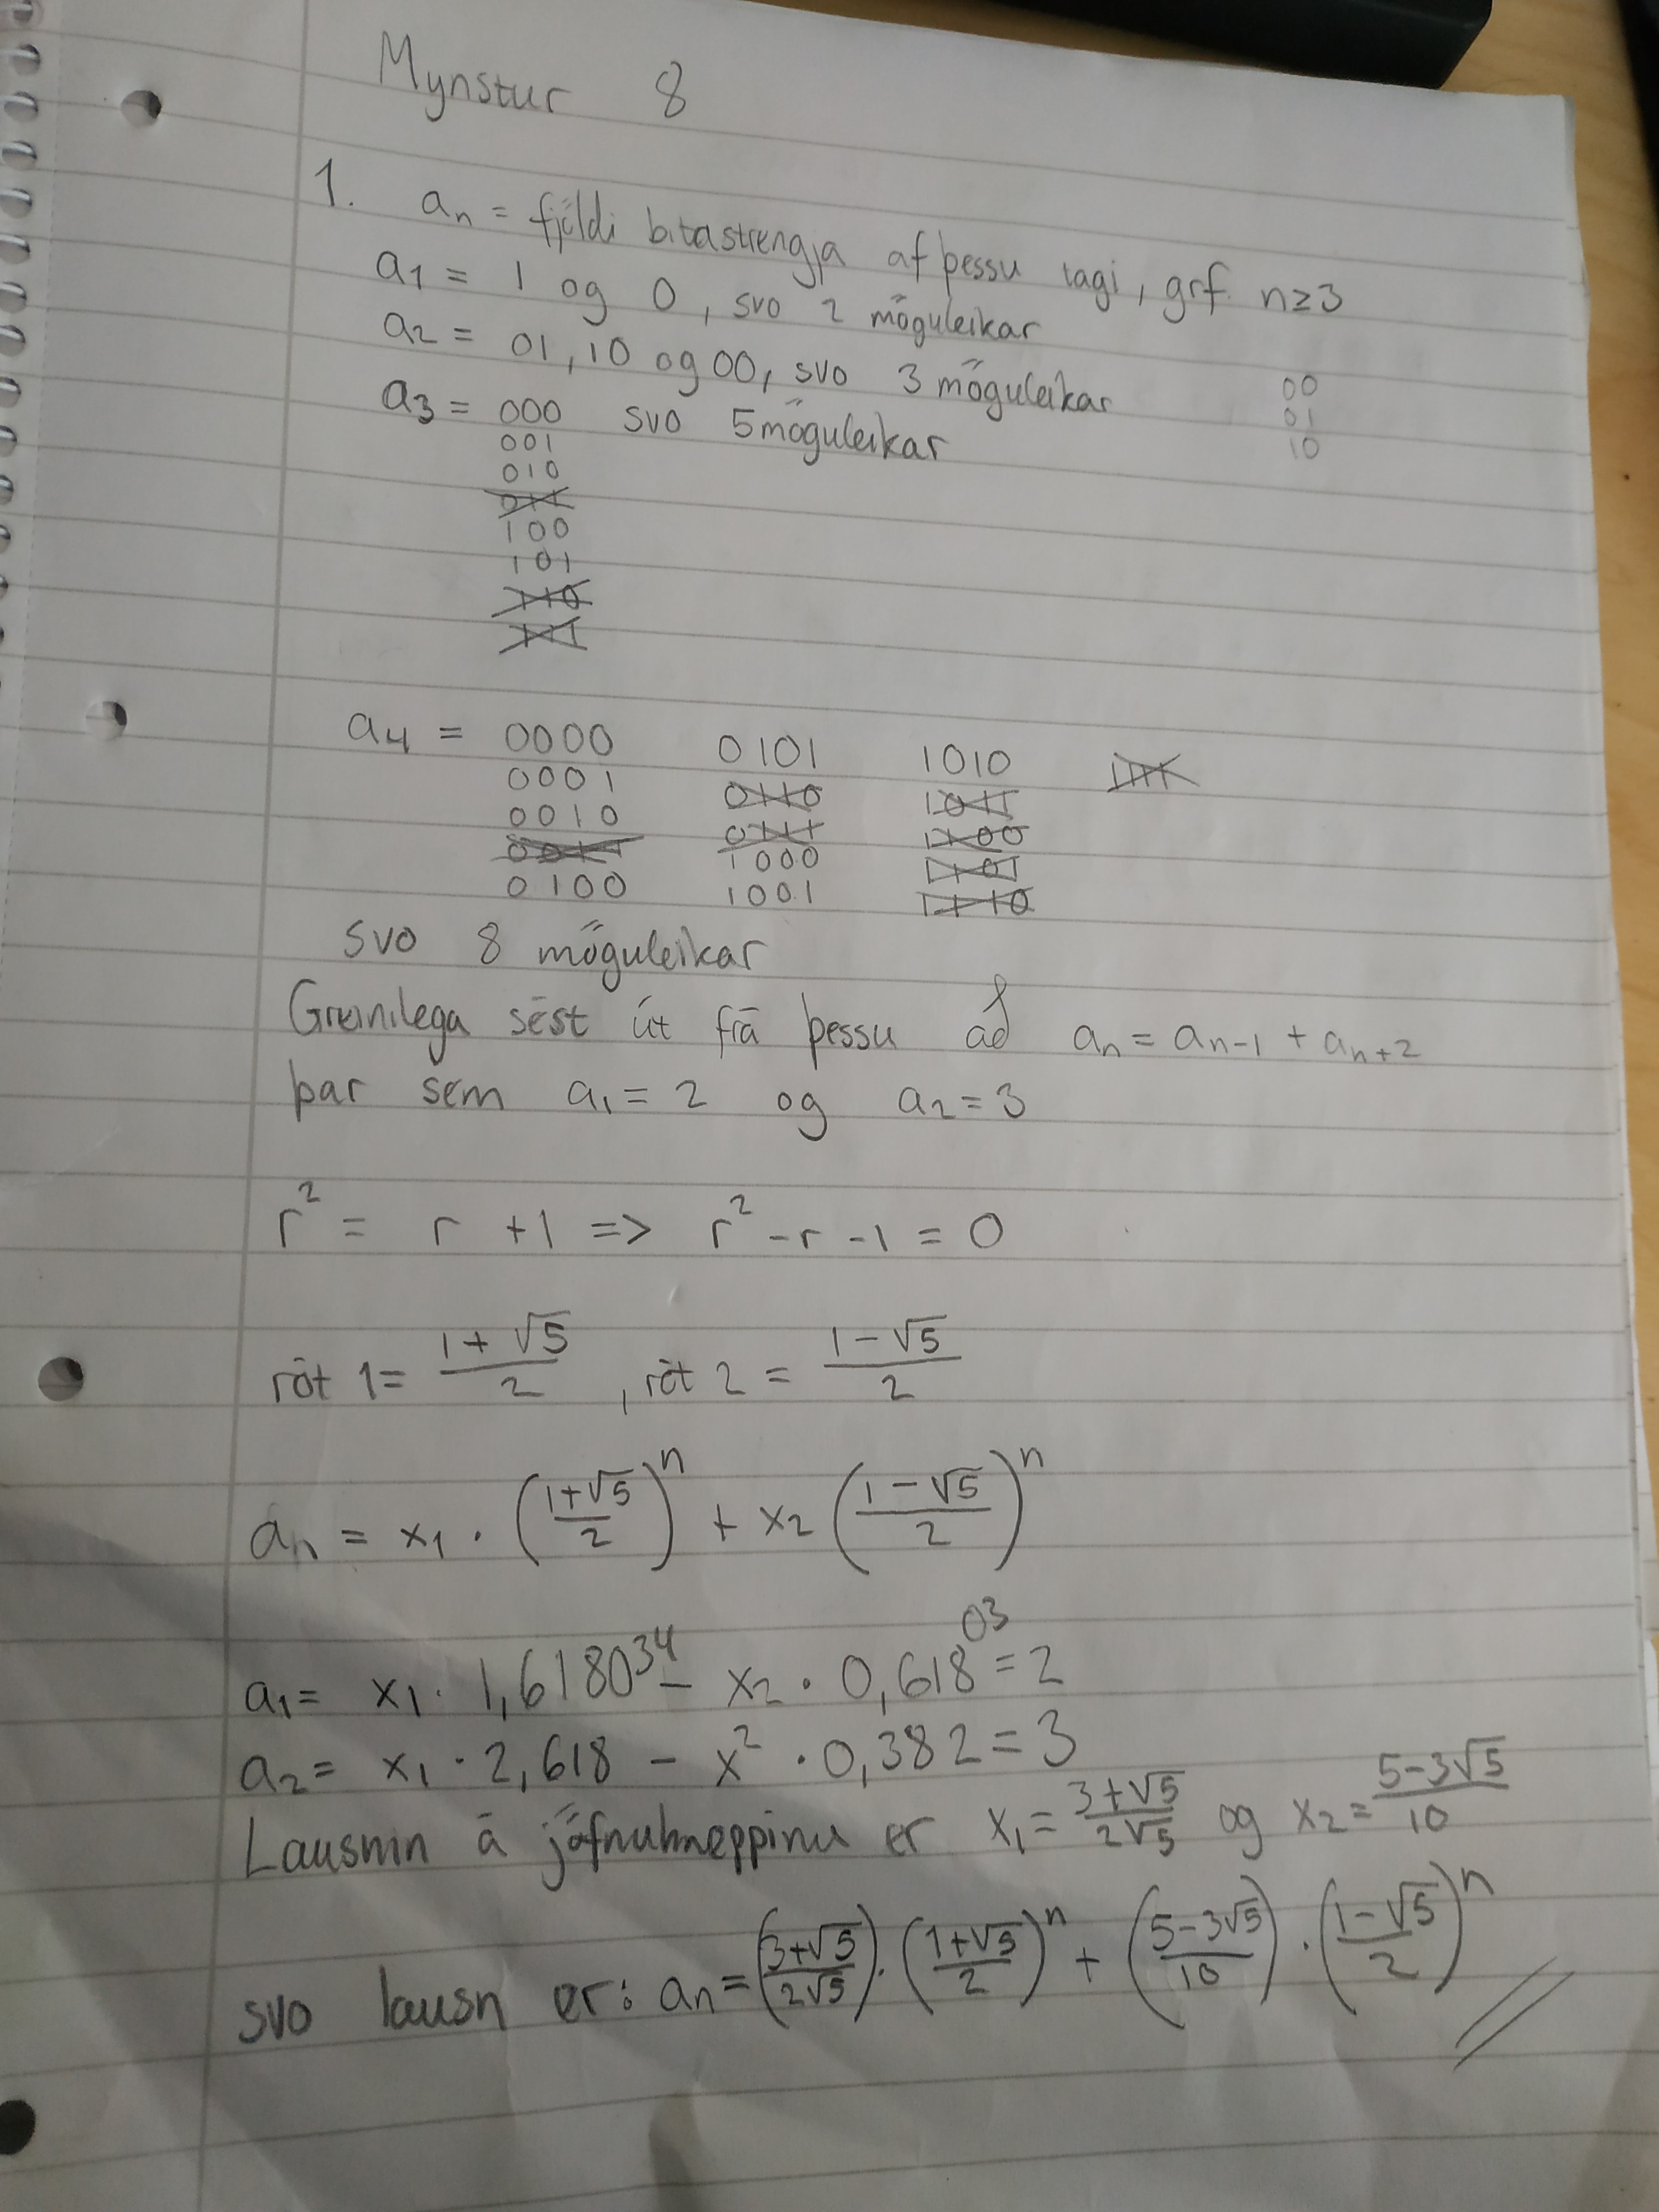 Mynstur 8
1. an = fjöldi bitastrengja af þessu tagi, grf. n≥3
a1 = 1 og 0, svo 2 möguleikar
a2 = 01, 10 og 00, svo 3 möguleikar
00
01
10
a3 = 000 svo 5 möguleikar
001
010
011
100
101
110
111
a4 = 0000 0101 1010 1111
0001 0110 1011
0010 0111 1100
0011 1000 1101
0100 1001 1110
svo 8 möguleikar
Greinilega sést út frá þessu að an = an-1 + an+2
þar sem a1 = 2 og a2 = 3
r² = r + 1 => r² - r - 1 = 0
rót 1 = (1+√5)/2, rót 2 = (1-√5)/2
an = x1 · ((1+√5)/2)^n + x2 ((1-√5)/2)^n
a1 = x1 · 1,618034 - x2 · 0,61803 = 2
a2 = x1 · 2,618 - x² · 0,382 = 3
Lausnin á jöfnuhneppinu er x1 = (3+√5)/(2√5) og x2 = (5-3√5)/10
svo lausn er: an = ((3+√5)/(2√5)) · ((1+√5)/2)^n + ((5-3√5)/10) · ((1-√5)/2)^n